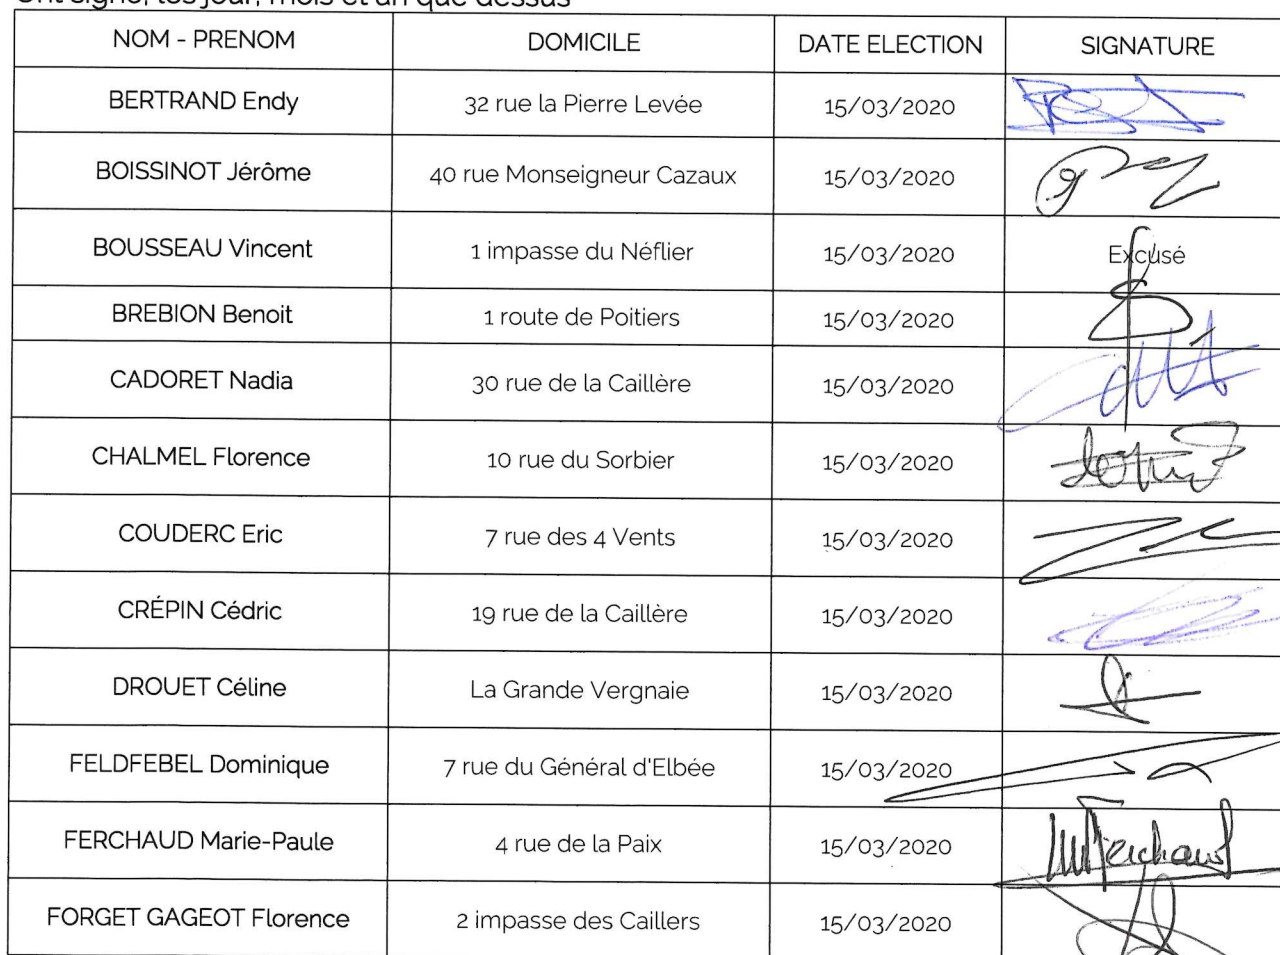 Ont signé, les jour, mois et an que dessus
NOM - PRENOM DOMICILE DATE ELECTION SIGNATURE
BERTRAND Endy 32 rue la Pierre Levée 15/03/2020
BOISSINOT Jérôme 40 rue Monseigneur Cazaux 15/03/2020
BOUSSEAU Vincent 1 impasse du Néflier 15/03/2020 Excusé
BREBION Benoit 1 route de Poitiers 15/03/2020
CADORET Nadia 30 rue de la Caillère 15/03/2020
CHALMEL Florence 10 rue du Sorbier 15/03/2020
COUDERC Eric 7 rue des 4 Vents 15/03/2020
CRÉPIN Cédric 19 rue de la Caillère 15/03/2020
DROUET Céline La Grande Vergnaie 15/03/2020
FELDFEBEL Dominique 7 rue du Général d'Elbée 15/03/2020
FERCHAUD Marie-Paule 4 rue de la Paix 15/03/2020 MFerchaud
FORGET GAGEOT Florence 2 impasse des Caillers 15/03/2020